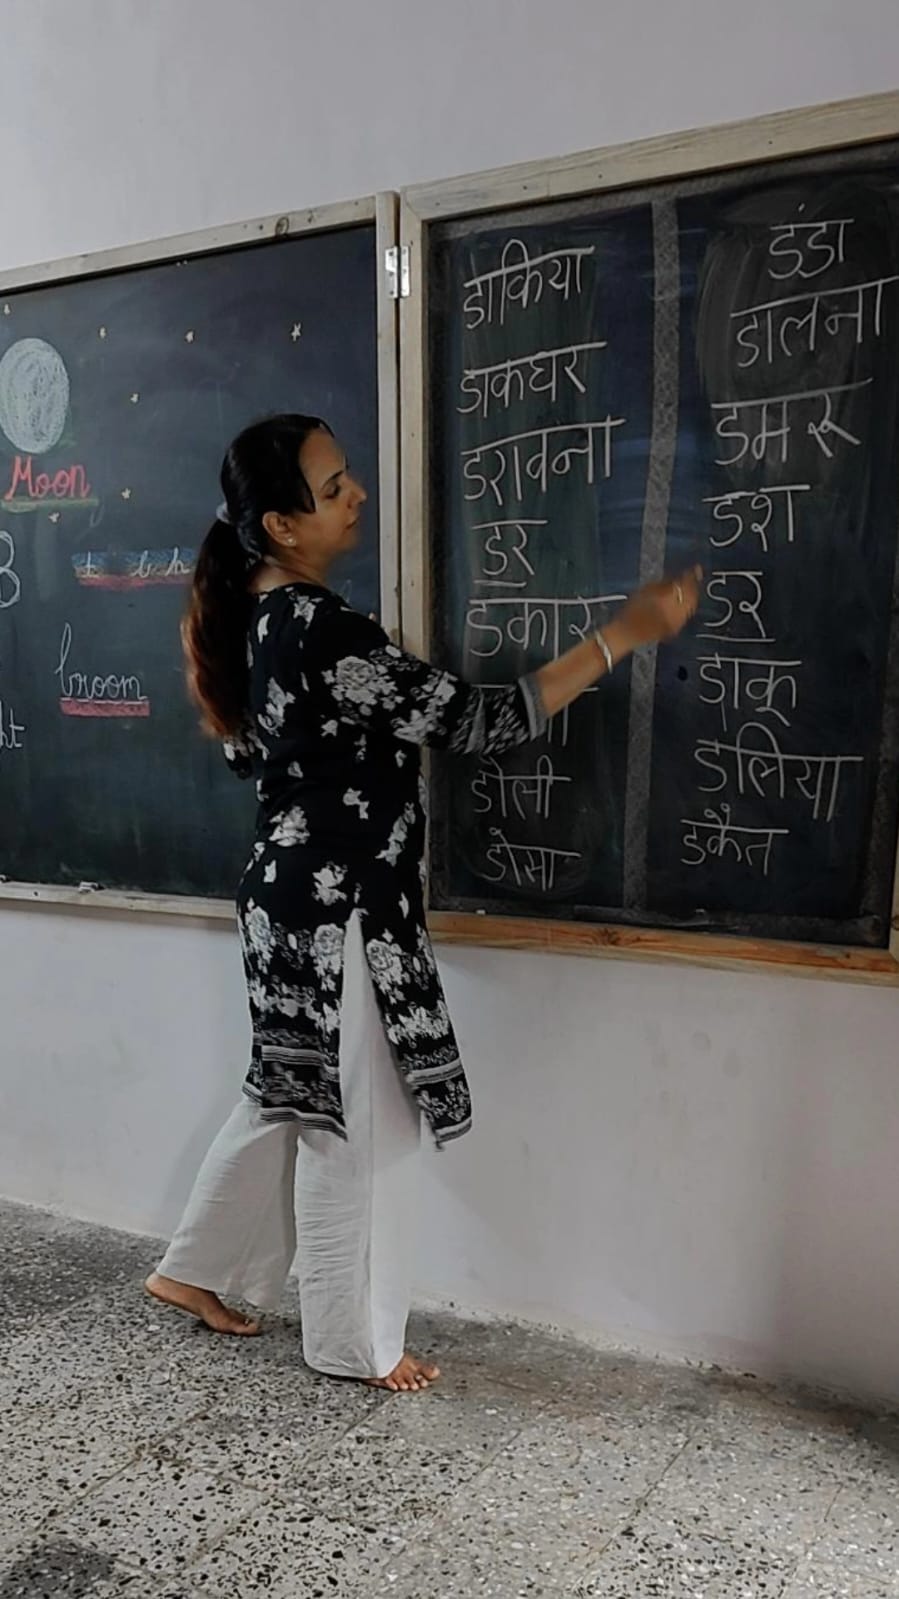 Moon
B
t b h
broom
ht
डाकिया
डाकघर
डरावना
डर
डकार
डोली
डोसा
डंडा
डालना
डमरू
डश
डर
डाकू
डलिया
डकैत